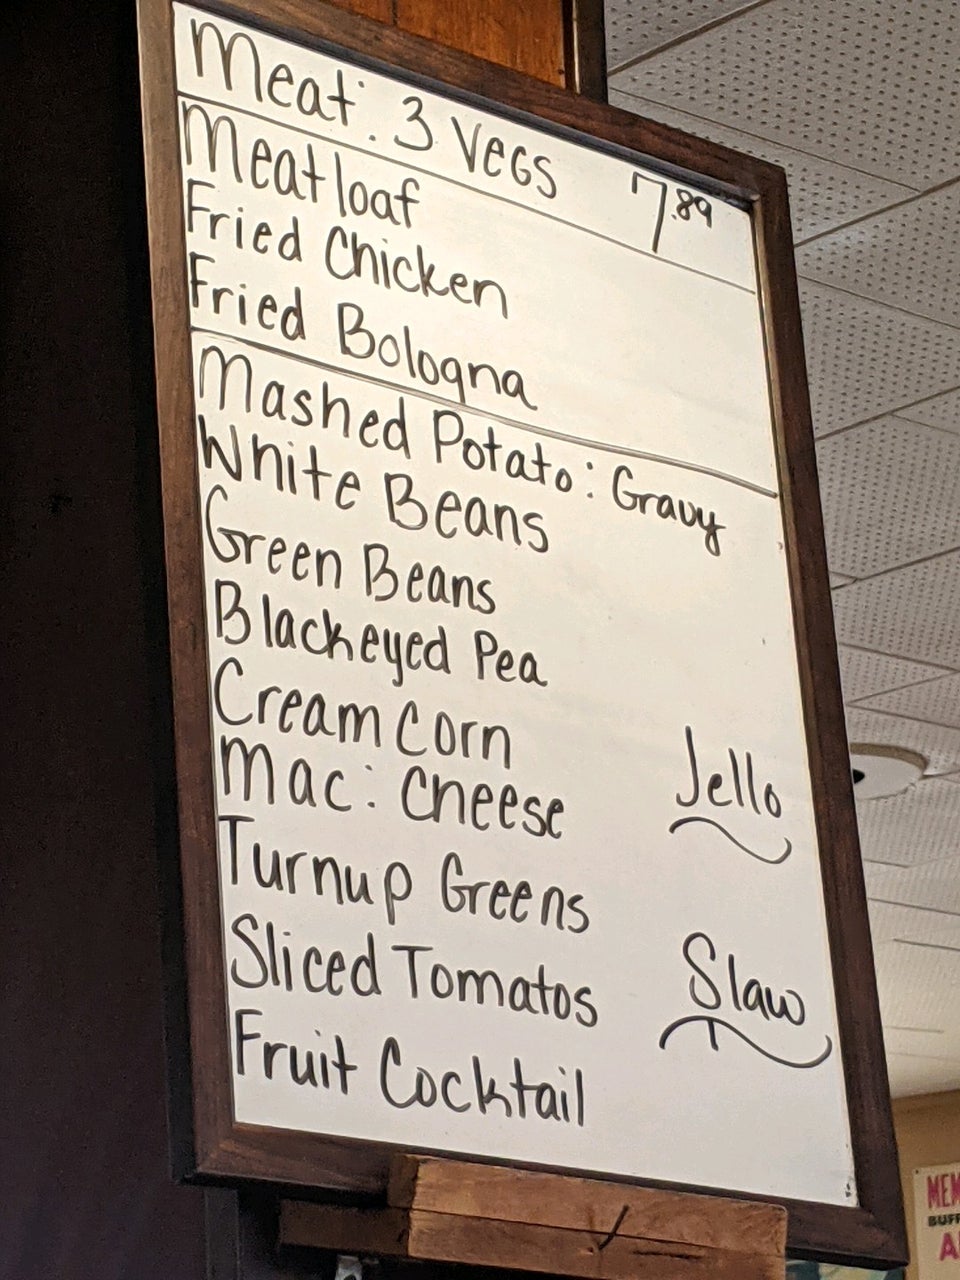 Meat: 3 Vegs 7.89
Meatloaf
Fried Chicken
Fried Bologna
Mashed Potato: Gravy
White Beans
Green Beans
Blackeyed Pea
Cream Corn
Mac: Cheese
Jello
Turnup Greens
Sliced Tomatos
Slaw
Fruit Cocktail